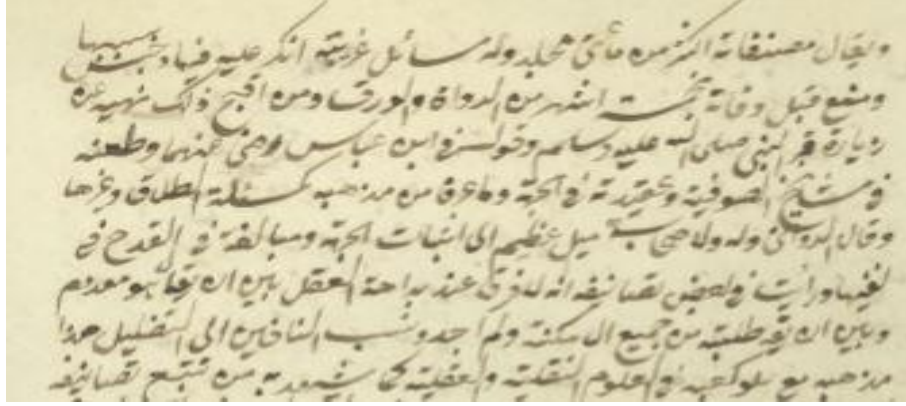 ويقال مصنفاته اكثر من مأتى مجلد وله مسائل غريبة انكر عليه فيها وحبس بسببها
ومنع قبل وفاته بخمسة اشهر من الدواة والورق ومن اقبح ذلك نهيه عن
زيارة قبر النبى صلى الله عليه وسلم وقوله فى ابن عباس رضى عنهما وطعنه
فى مشايخ الصوفية وعقيدته فى الجهة وما عرف من مذهبه كمسئلة الطلاق وغيرها
وقال الدوانى وله ولاصحابه ميل عظيم الى اثبات الجهة ومبالغة فى القدح فى
نفيها ورأيت فى بعض تصانيفه انه لا فرق عند بداهة العقل بين ان يقال هو معدوم
وبين ان يقال طلبته من جميع الامكنة ولم اجده ونسب النافين الى التضليل هذا
مذهبه مع علو كعبه فى العلوم النقلية والعقلية كما شهد به من تتبع تصانيفه